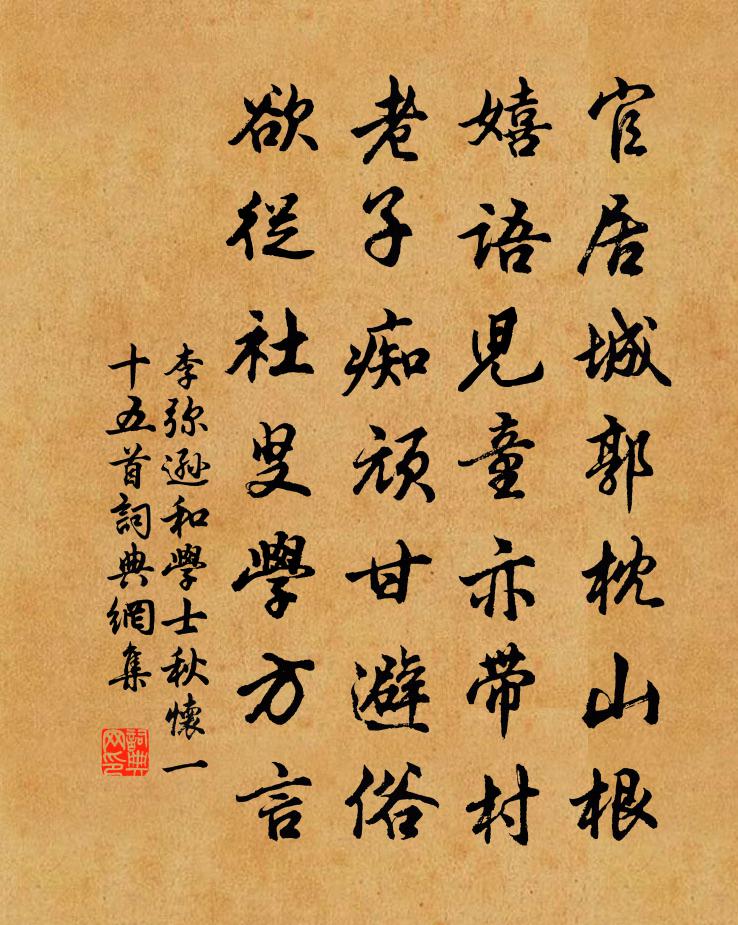 官居城郭枕山根
嬉語兒童亦带村
老子痴頑甘避俗
欲從社叟學方言
李弥遜和學士秋懷一
十五首詞典網集
詞典网印